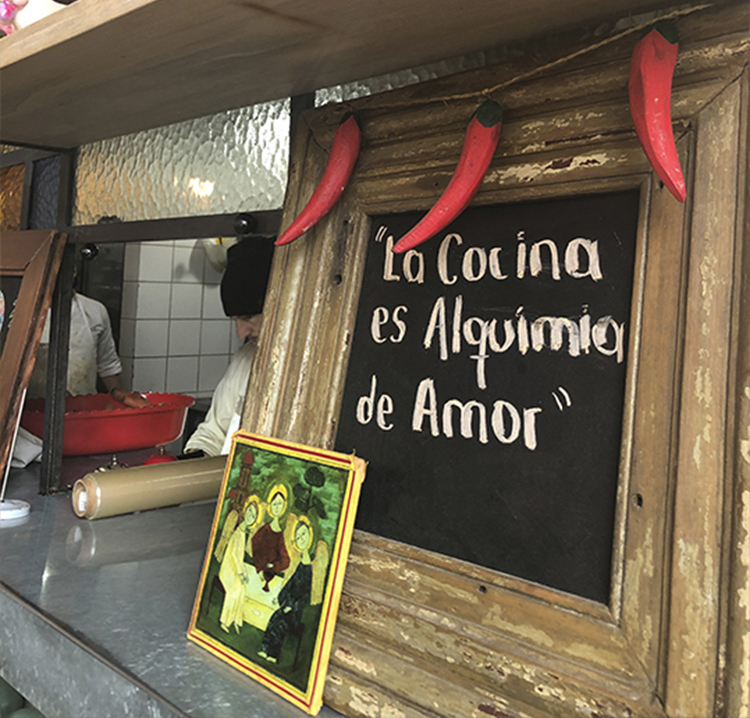 "La Cocina
es Alquimia
de Amor"